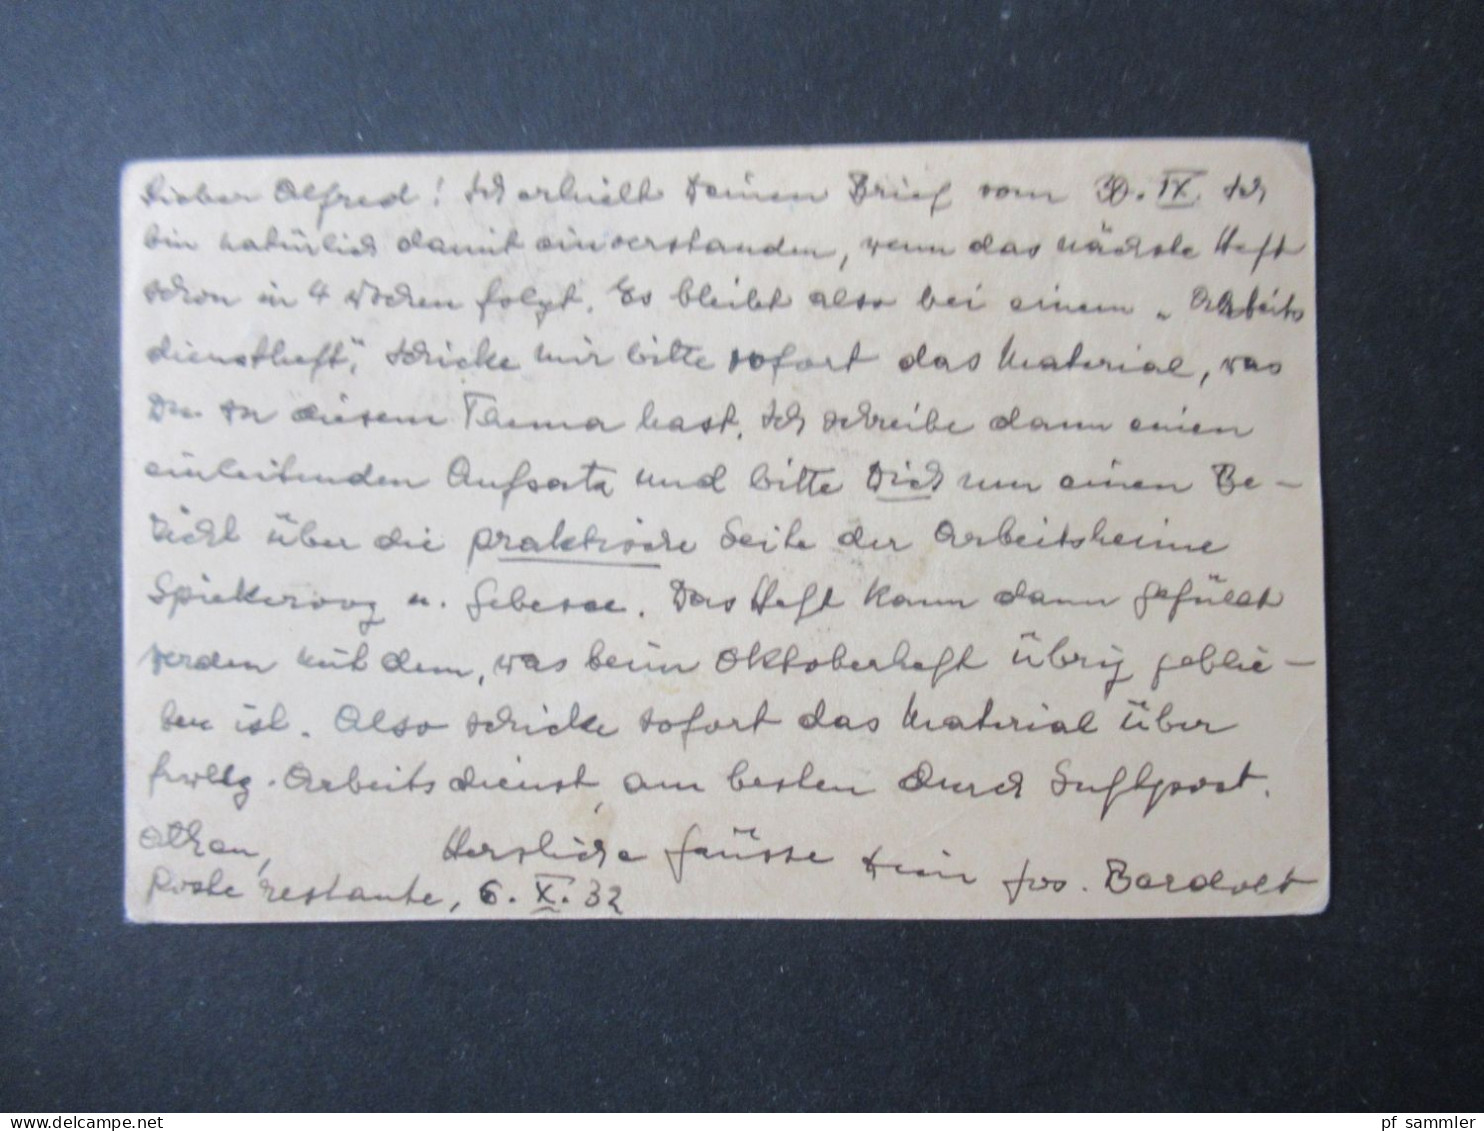 Lieber Alfred! Ich erhielt Deinen Brief vom 30. IX. Ich
bin natürlich damit einverstanden, wenn das nächste Heft
schon in 4 Wochen folgt. Es bleibt also bei einem „Arbeits
dienstheft", schicke mir bitte sofort das Material, was
Du zu diesem Thema hast. Ich schreibe dann einen
einleitenden Aufsatz und bitte Dich um einen Be-
richt über die praktische Seite der Arbeitsheime
Spiekeroog u. Gebesee. Das Heft kann dann gefüllt
werden mit dem, was beim Oktoberheft übrig geblie-
ben ist. Also schicke sofort das Material über
frwllg. Arbeitsdienst, am besten durch Luftpost.
Athen, Herzliche Grüsse Dein Jos.
Poste restante, 6. X. 32
pf sammler
www.delcampe.net